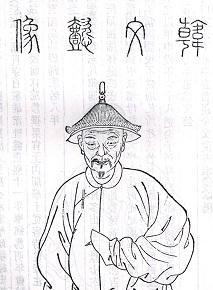 韓文懿像